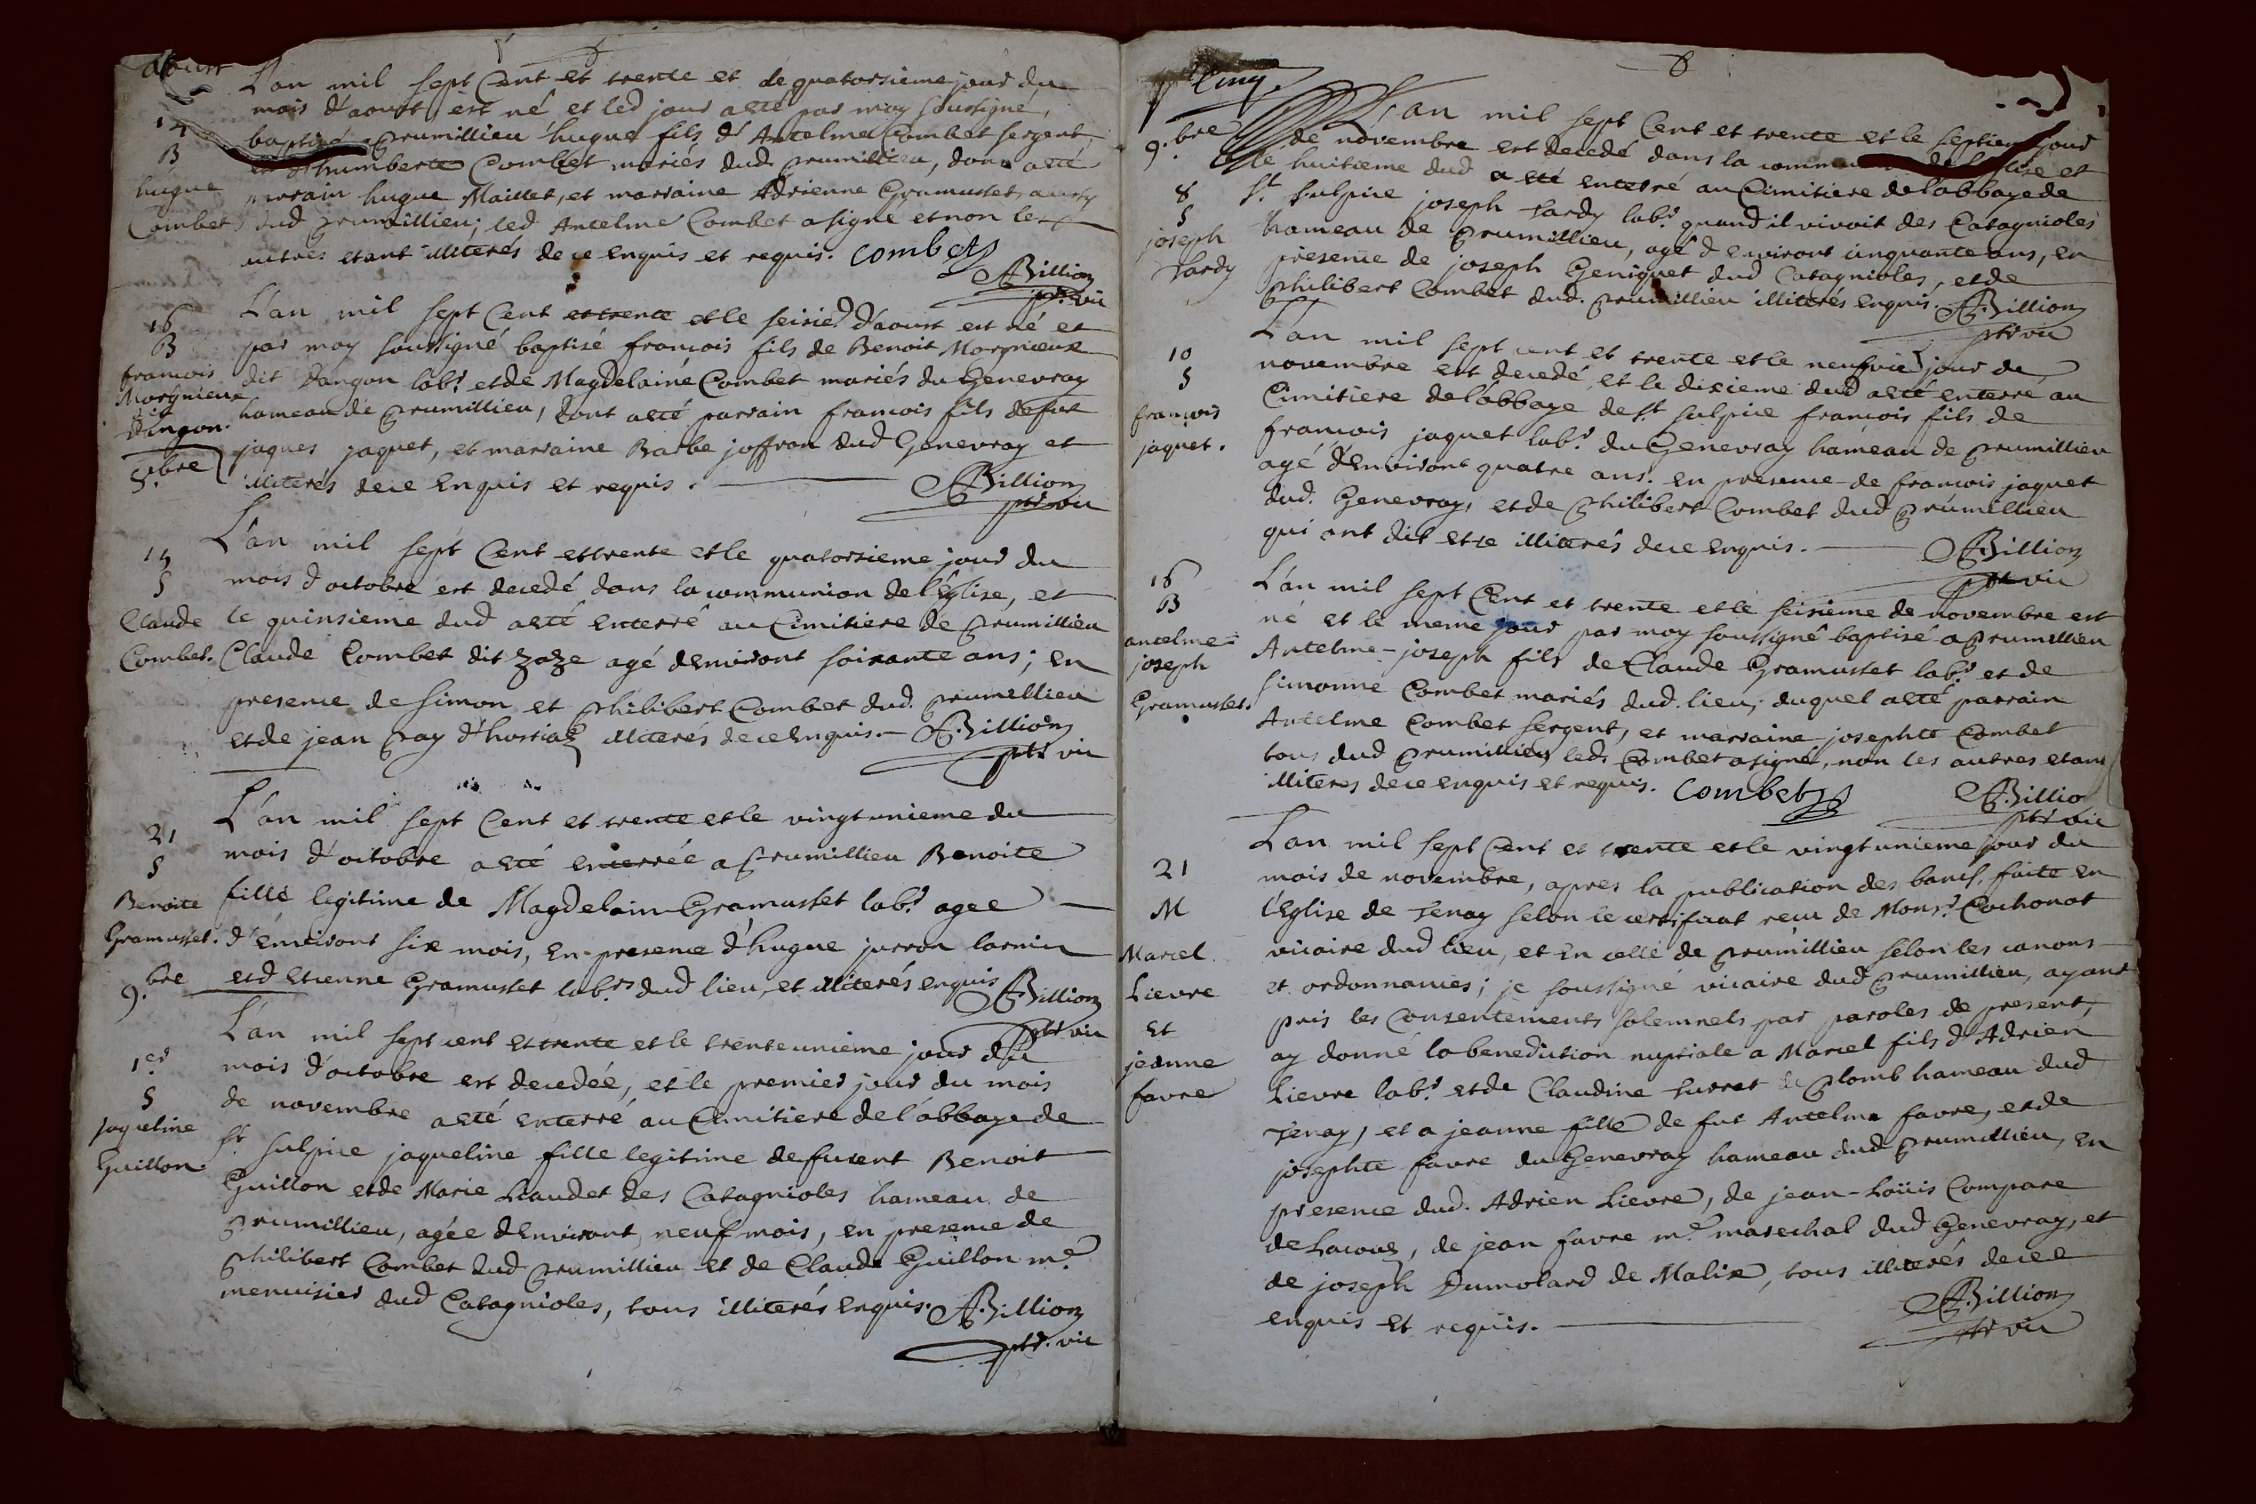 aoust
L'an mil sept Cent et trente et le quatorsieme jour du
mois d'aoust est né et led jour a eté par moy soussigné,
14
baptisé a prumillieu hugue fils d'Antelme Combet sergent
B
et d'humberte Combet mariés dud prumillieu, dont a eté
hugue
parrain hugue Maillet, et marraine Adrienne Gramusset, aussy
Combet
dud prumillieu; led Antelme Combet a signé et non les
autres etant illiterés de ce enquis et requis. Combet
A Billion
ptr. vic
L'an mil sept Cent et trente et le seisie. d'aoust est né et
16
B
par moy soussigné baptisé francois fils de Benoit Morgnieux
francois
Morgnieux
dit dangon labr. et de Magdelaine Combet mariés du Genevray
dit
dangon.
hameau de prumillieu, dont a eté parrain francois fils de fut
jaques jaquet, et marraine Barbe joffran dud Genevray et
8.bre
illiterés de ce enquis et requis.
A Billion
ptr vic
L'an mil sept Cent et trente et le quatorsieme jour du
15
S
mois d'octobre est decedé dans la communion de l'Eglise, et
Claude
le quinsieme dud a eté enterré au Cimitiere de prumillieu
Combet.
Claude Combet dit zaze agé d'environt soixante ans; en
presence de simon et philibert Combet dud. prumillieu
et de jean pay d'hostiaz illiterés de ce enquis. A. Billion
ptr vic
L'an mil sept Cent et trente et le vingtunieme du
21
mois d'octobre a eté enterrée a prumillieu Benoite
S
Benoite
fille legitime de Magdelain Gramusset labr. agee
Gramusset.
d'environt six mois, en presence d'hugue jurron
9.bre
et d'Etienne Gramusset labrs. dud lieu, et illiterés enquis
A Billion
ptr vic
L'an mil sept cent et trente et le trenteunieme jour du
1er
mois d'octobre est decedée, et le premier jour du mois
S
de novembre a eté enterré au Cimitiere de l'abbaye de
jaqueline
st. sulpice jaqueline fille legitime de fuient Benoit
Guillon
Guillon et de Marie Liaudet des Catagnioles hameau de
prumillieu, agée d'Environt neuf mois, en presence de
philibert Combet dud prumillieu et de Claude Guillon me.
menuisier dud Catagnioles, tous illiterés enquis. A. Billion
ptr. vic
8
L'an mil sept Cent et trente et le septieme jour
9.bre
de novembre est decedé dans la communion de l'Eglise et
le huitieme dud a eté enterré au Cimitiere de l'abbaye de
8
st. sulpice joseph Tardy labr. quand il vivoit des Catagnioles
S
joseph
hameau de prumillieu, agé d'environt cinquante ans, en
Tardy
presence de joseph Geniquet dud Catagnioles, et de
philibert Combet dud. prumillieu illiterés enquis. A Billion
ptr vic
L'an mil sept cent et trente et le neufvie. jour de
10
novembre est decedé, et le dixieme dud a eté enterré au
S
Cimitiere de l'abbaye de st. sulpice francois fils de
francois
francois jaquet labr. du Genevray hameau de prumillieu
jaquet.
agé d'Environt quatre ans. en presence de francois jaquet
dud. Genevray, et de philibert Combet dud prumillieu
qui ont dit etre illiterés de ce enquis.
A Billion
ptr vic
16
L'an mil sept Cent et trente et le seisieme de novembre est
B
né et le meme jour par moy soussigné baptisé a prumillieu
antelme-
joseph
Antelme-joseph fils de Claude Gramusset labr. et de
Gramusset.
simonne Combet mariés dud. lieu; duquel a eté parrain
Antelme Combet sergent, et marraine josephte Combet
tous dud prumillieu, leds Combet a signé, non les autres etant
illiteres de ce enquis et requis. Combet
A Billio
ptr vic
L'an mil sept Cent et trente et le vingtunieme jour du
21
mois de novembre, apres la publication des bancs, faite en
M
l'Eglise de Tenay selon le certificat receu de Monsr. Cochonat
Marcel
vicaire dud lieu, et en celle de prumillieu selon les canons
Lievre
et ordonnances; je soussigné vicaire dud prumillieu, ayant
Et
pris les Consentements solemnels par paroles de present,
jeanne
ay donné la benediction nuptiale a Marcel fils d'Adrien
favre
Lievre labr. et de Claudine surret de plomb hameau dud
Tenay, et a jeanne fille de fut Antelme favre, et de
josephte favre du Genevray hameau dud prumillieu, En
presence dud. Adrien Lievre, de jean-Loüis Compare
de Lacoux, de jean favre me. marechal dud Genevray, et
de joseph Dumolard de Malix, tous illiterés de ce
enquis et requis.
A Billion
ptr vic